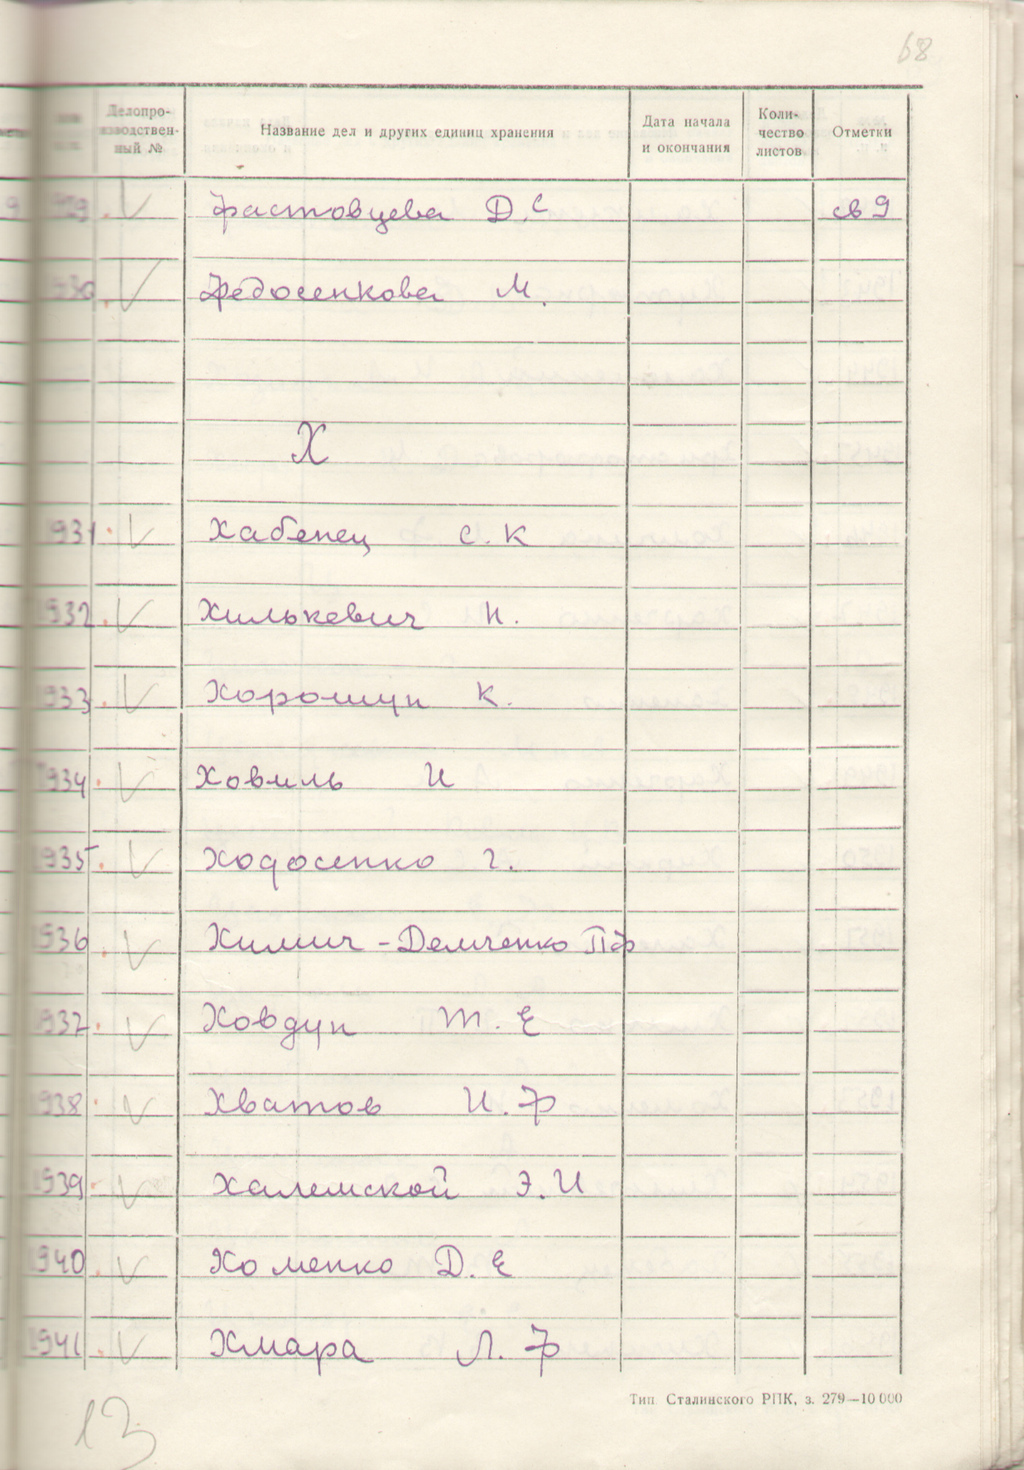 68
Делопро-
изводствен-
ный №
Название дел и других единиц хранения
Дата начала
и окончания
Коли-
чество
листов
Отметки
Фастовцева Д.С св 9
1930. Федосенкова М.
Х
1931. Хабенец С.К
1932. Хилькевич Н.
1933. Хорошун К.
1934. Ховиль И
1935. Ходосенко Г.
1936. Химич-Демченко П.Ф
1937. Ховдун Т.Е
1938. Хватов И.Ф
1939. Халемской Э.И
1940. Хоменко Д.Е
1941. Хмара Л.Ф
Тип. Сталинского РПК, з. 279—10 000
13